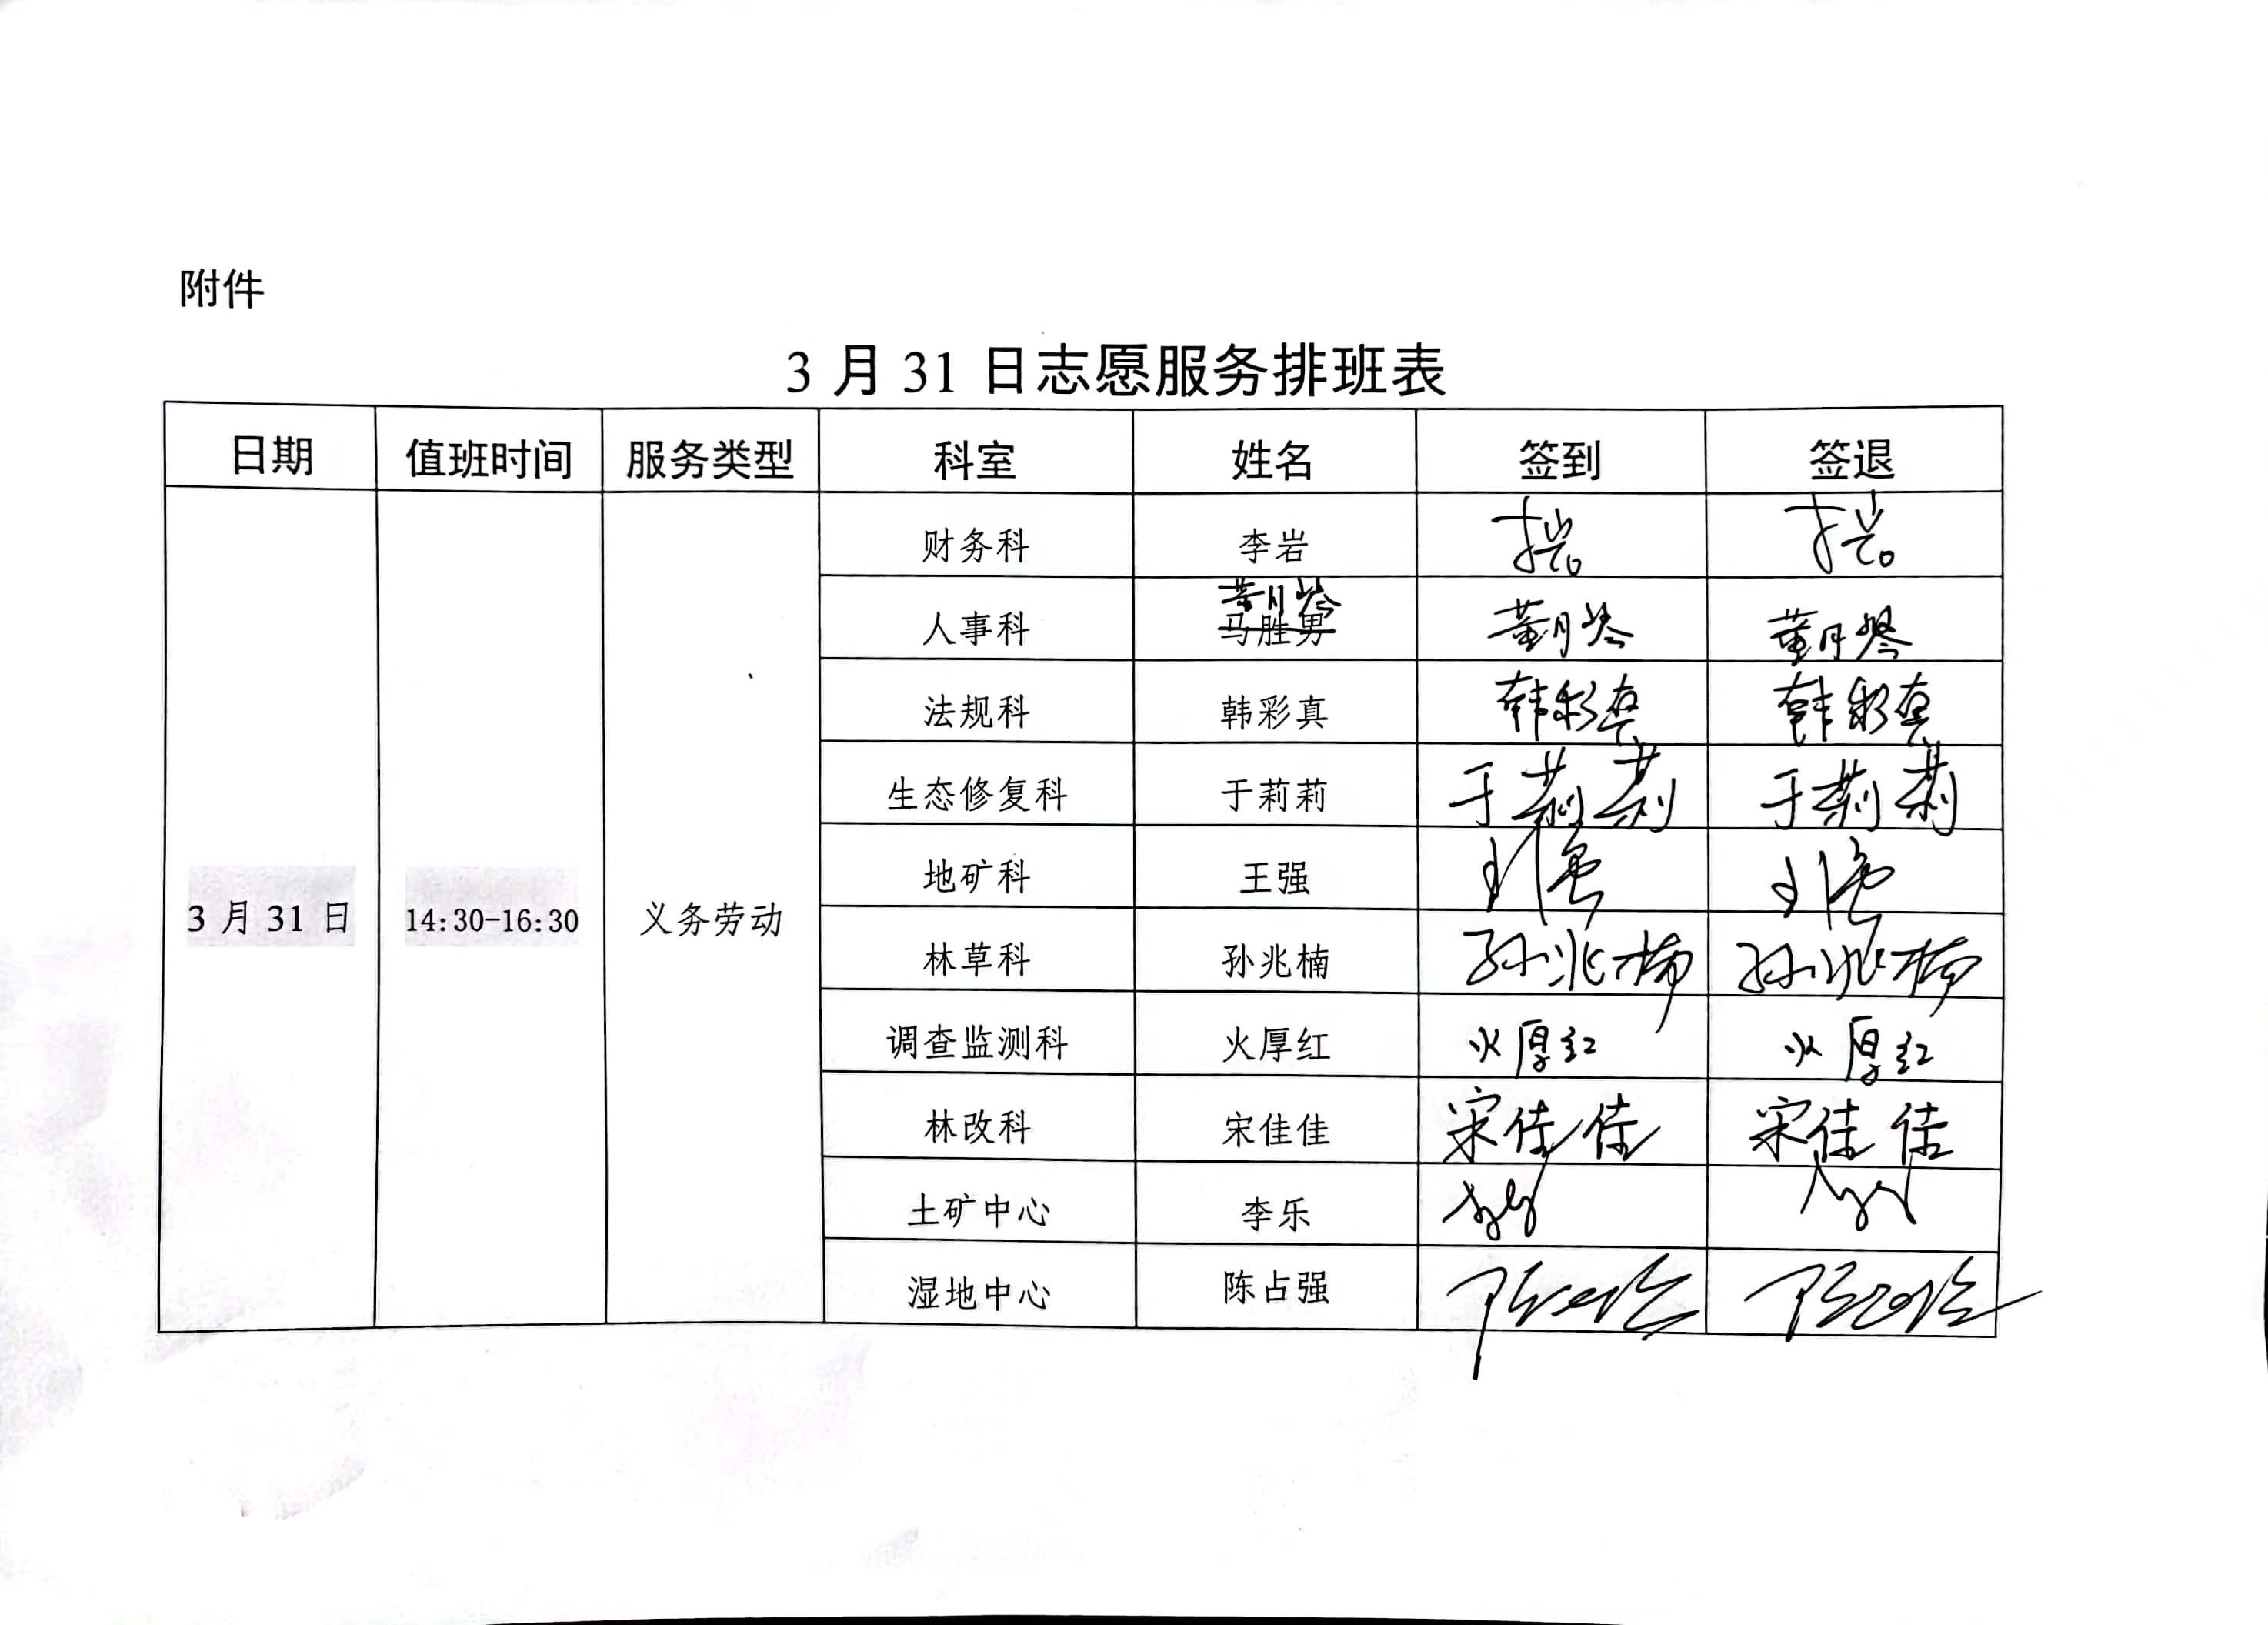 附件
3 月 31 日志愿服务排班表
日期 值班时间 服务类型 科室 姓名 签到 签退
3 月 31 日 14:30-16:30 义务劳动
财务科 李岩 李岩 李岩
董月琴
人事科 马胜男 董月琴 董月琴
法规科 韩彩真 韩彩真 韩彩真
生态修复科 于莉莉 于莉莉 于莉莉
地矿科 王强 王强 王强
林草科 孙兆楠 孙兆楠 孙兆楠
调查监测科 火厚红 火厚红 火厚红
林改科 宋佳佳 宋佳佳 宋佳佳
土矿中心 李乐
湿地中心 陈占强 陈占强 陈占强